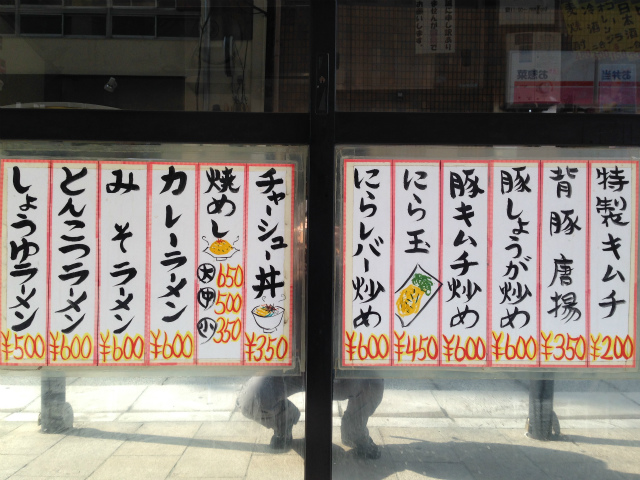 特製キムチ
¥200
背豚唐揚
¥350
豚しょうが炒め
¥600
豚キムチ炒め
¥600
にら玉
¥450
にらレバー炒め
¥600
チャーシュー丼
¥350
焼めし
大 650
中 500
小 350
カレーラーメン
¥600
みそラーメン
¥600
とんこつラーメン
¥600
しょうゆラーメン
¥500